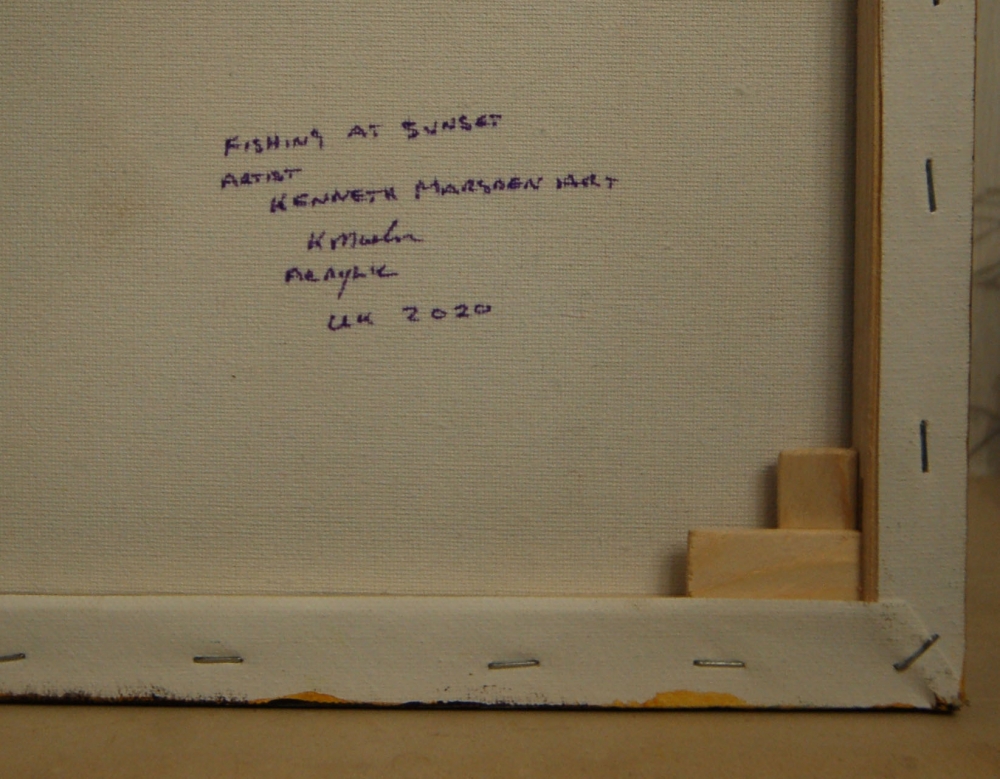 FISHING AT SUNSET
ARTIST
KENNETH MARSDEN HART
ACRYLIC
UK 2020